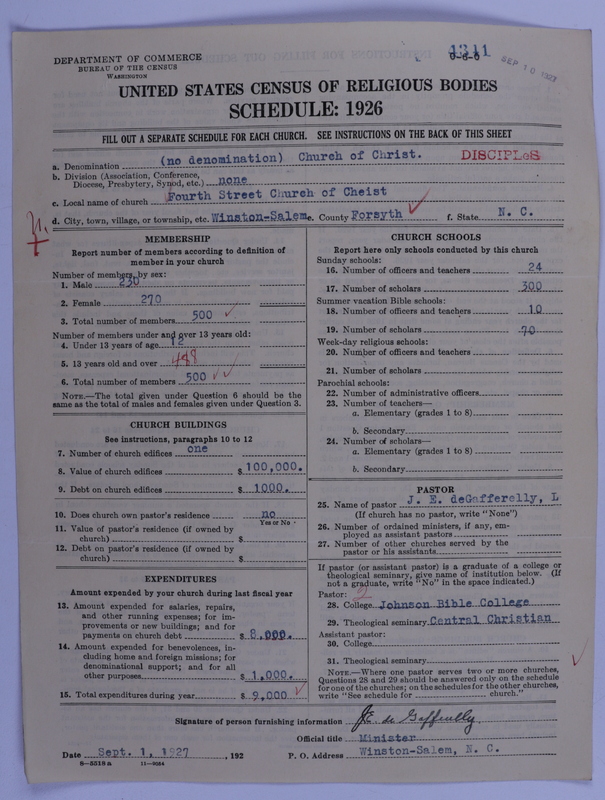 1311
0-8-0
SEP 10 1927
DEPARTMENT OF COMMERCE
BUREAU OF THE CENSUS
WASHINGTON
UNITED STATES CENSUS OF RELIGIOUS BODIES
SCHEDULE: 1926
FILL OUT A SEPARATE SCHEDULE FOR EACH CHURCH. SEE INSTRUCTIONS ON THE BACK OF THIS SHEET
a. Denomination (no denomination) Church of Christ. DISCIPLES
b. Division (Association, Conference, Diocese, Presbytery, Synod, etc.) none
c. Local name of church Fourth Street Church of Cheist
d. City, town, village, or township, etc. Winston-Salem e. County Forsyth f. State N. C.
MEMBERSHIP
Report number of members according to definition of
member in your church
Number of members by sex:
1. Male 230
2. Female 270
3. Total number of members 500
Number of members under and over 13 years old:
4. Under 13 years of age 12
5. 13 years old and over 488
6. Total number of members 500
NOTE.—The total given under Question 6 should be the
same as the total of males and females given under Question 3.
CHURCH BUILDINGS
See instructions, paragraphs 10 to 12
7. Number of church edifices one
8. Value of church edifices $ 100,000.
9. Debt on church edifices $ 1000.
10. Does church own pastor's residence no
Yes or No
11. Value of pastor's residence (if owned by
church) $
12. Debt on pastor's residence (if owned by
church) $
EXPENDITURES
Amount expended by your church during last fiscal year
13. Amount expended for salaries, repairs,
and other running expenses; for im-
provements or new buildings; and for
payments on church debt $ 8,000.
14. Amount expended for benevolences, in-
cluding home and foreign missions; for
denominational support; and for all
other purposes $ 1,000.
15. Total expenditures during year $ 9,000
CHURCH SCHOOLS
Report here only schools conducted by this church
Sunday schools:
16. Number of officers and teachers 24
17. Number of scholars 300
Summer vacation Bible schools:
18. Number of officers and teachers 10
19. Number of scholars 70
Week-day religious schools:
20. Number of officers and teachers
21. Number of scholars
Parochial schools:
22. Number of administrative officers
23. Number of teachers—
a. Elementary (grades 1 to 8)
b. Secondary
24. Number of scholars—
a. Elementary (grades 1 to 8)
b. Secondary
PASTOR
25. Name of pastor J. E. deGafferelly, L
(If church has no pastor, write "None")
26. Number of ordained ministers, if any, em-
ployed as assistant pastors
27. Number of other churches served by the
pastor or his assistants
If pastor (or assistant pastor) is a graduate of a college or
theological seminary, give name of institution below. (If
not a graduate, write "No" in the space indicated.)
Pastor: 2
28. College Johnson Bible College
29. Theological seminary Central Christian
Assistant pastor:
30. College
31. Theological seminary
NOTE.—Where one pastor serves two or more churches,
Questions 28 and 29 should be answered only on the schedule
for one of the churches; on the schedules for the other churches,
write "See schedule for church."
Signature of person furnishing information J.E. de Gafferelly.
Official title Minister
Date Sept. 1, 1927, 192 P. O. Address Winston-Salem, N. C.
8-5518a 11-9084